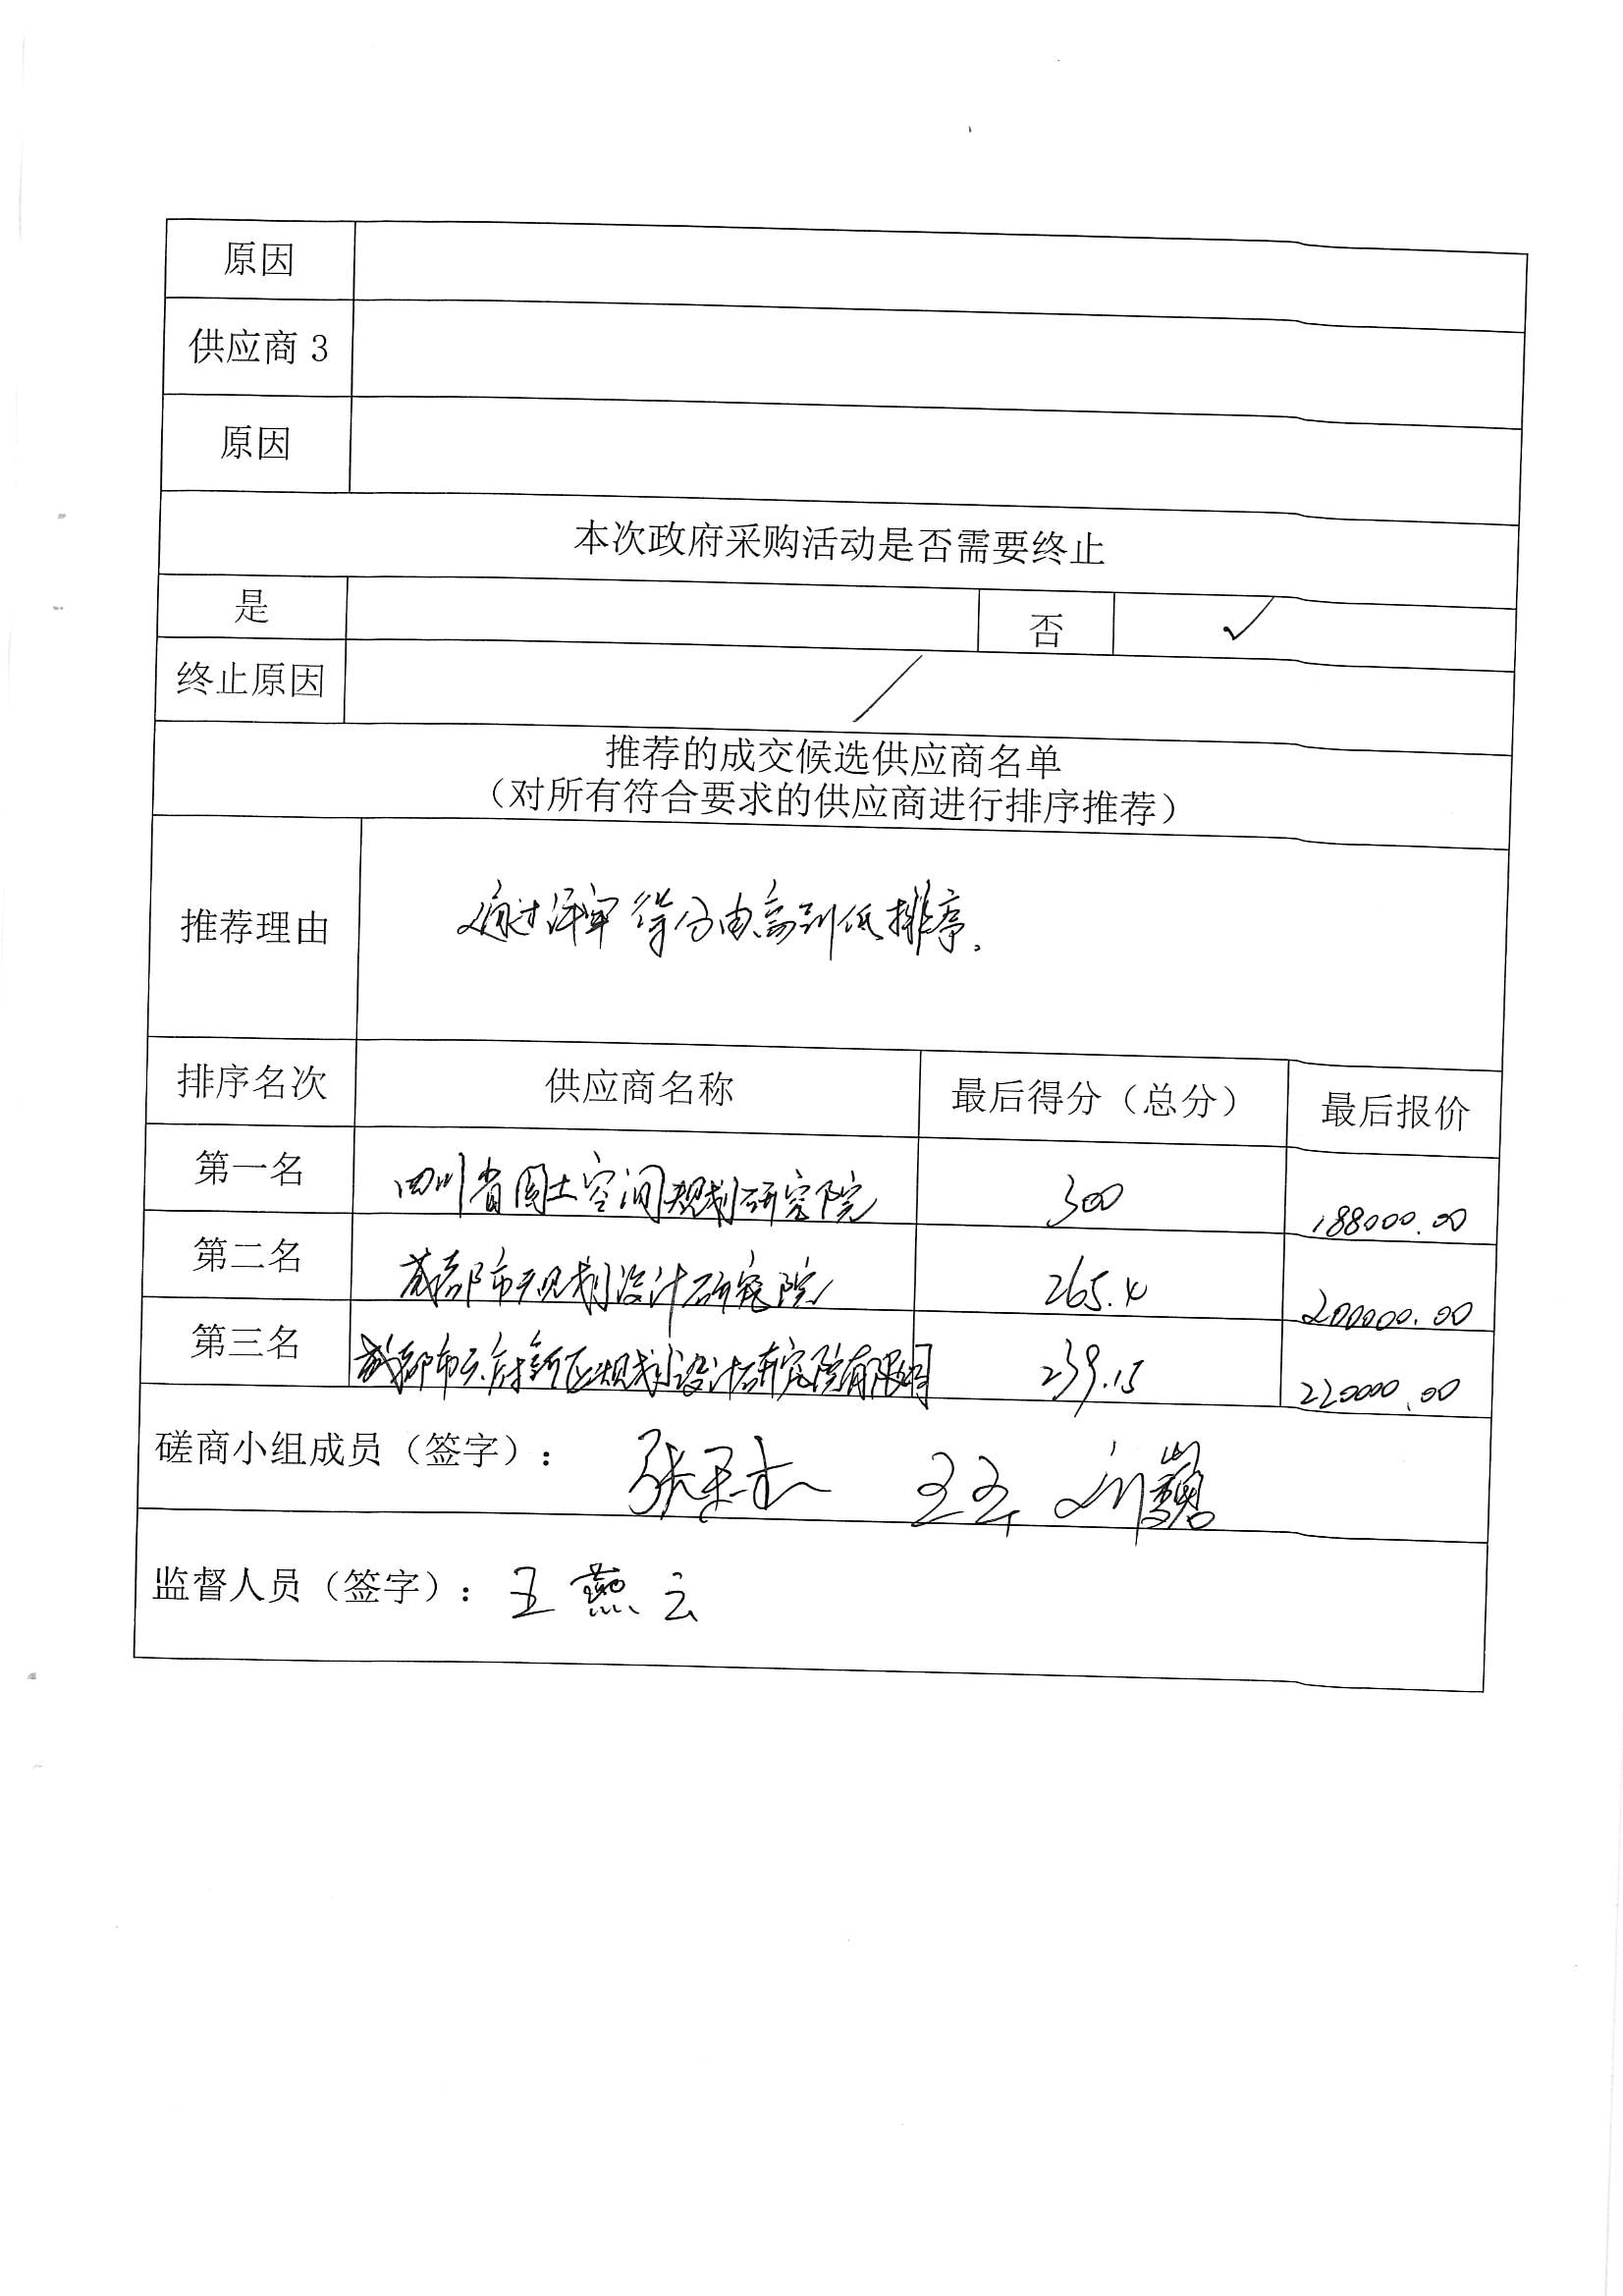 原因
供应商 3
原因
本次政府采购活动是否需要终止
是 否 ✓
终止原因 /
推荐的成交候选供应商名单
（对所有符合要求的供应商进行排序推荐）
推荐理由 通过评审得分由高到低排序。
排序名次 供应商名称 最后得分（总分） 最后报价
第一名 四川省国土空间规划研究院 300 188000.00
第二名 成都市规划设计研究院 265.4 200000.00
第三名 成都市天府新区规划设计研究院有限公司 239.15 220000.00
磋商小组成员（签字）： 张 王 刘巍
监督人员（签字）：王燕云